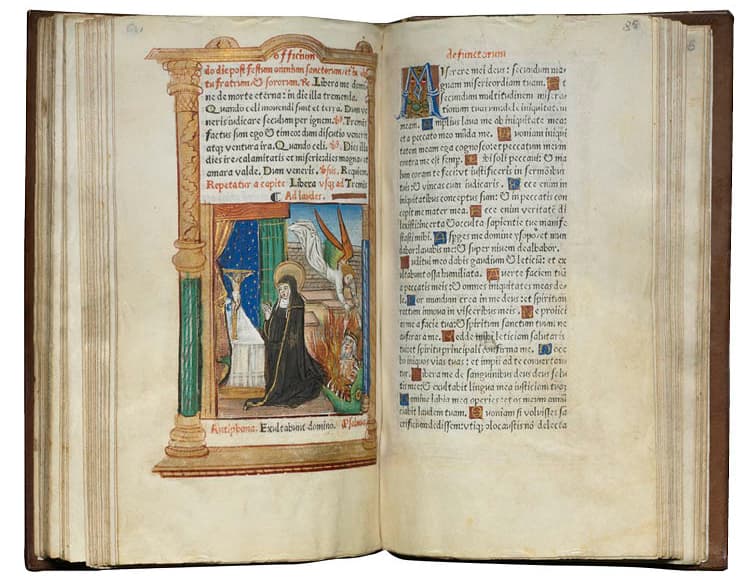 officium
do die post festum omnium sanctorum, et in obi-
tu fratrum, & sororum. R. Libera me domi
ne de morte eterna: in die illa tremenda.
Quando celi movendi sunt et terra. Dum ve
neris iudicare seculum per ignem. V. Tremēs
factus sum ego & timeo: dum discutio venerit
atq; ventura ira. Quando celi. V. Dies illa
dies ire: calamitatis et miserie: dies magna et
amara valde. Dum veneris. Requiem.
Repetatur a capite Libera usq; ad Tremēs
Ad laudes.
Antiphona. Exultabunt domino.
defunctorum
Miserere mei deus: secundum ma-
gnam misericordiam tuam. Et
secundum multitudinem misera-
tionum tuarum: dele iniquitatē
meam. Amplius lava me ab iniquitate mea:
et a peccato meo mūda me. Quoniam iniqui
tatem meam ego cognosco: et peccatum meum
contra me est semp. Tibi soli peccavi: & ma
lum coram te feci: ut iustificeris in sermōibus
tuis & vincas cum iudicaris. Ecce enim in
iniquitatibus conceptus sum: & in peccatis con
cepit me mater mea. Ecce enim veritatē di
lexisti: incerta & occulta sapientie tue manife
stasti mihi. Asperges me domine ysopo: et mun
dabor: lavabis me: & super nivem dealbabor.
Auditui meo dabis gaudium & leticiā: et ex
ultabunt ossa humiliata. Averte faciem tuā
a peccatis meis: & omnes iniquitates meas de
le. Cor mundum crea in me deus: et spiritum
rectum innova in visceribus meis. Ne proiici
as me a facie tua: & spiritum sanctum tuum ne
auferas a me. Redde mihi leticiam salutaris
tui: et spiritu principali confirma me. Doce
bo iniquos vias tuas: et impii ad te converten
tur. Libera me de sanguinibus deus deus salu
tis mee: & exultabit lingua mea iusticiam tuā:
Domine labia mea aperies: et os meum annū
ciabit laudem tuam. Quoniam si voluisses sa
crificium dedissem: utiq; olocaustis nō delecta